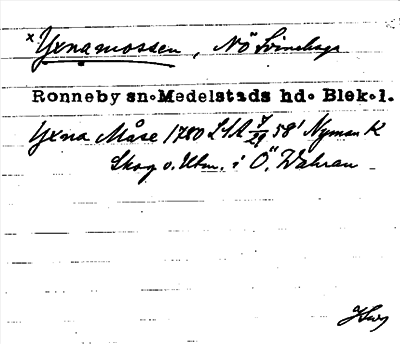 x Yxnamossen, NÖ Svineboge
Ronneby sn. Medelstads hd. Blek. l.
Yxna Måse 1780 LSA 58' Nyman K
Skog o. Utm. i Ö. Wahran